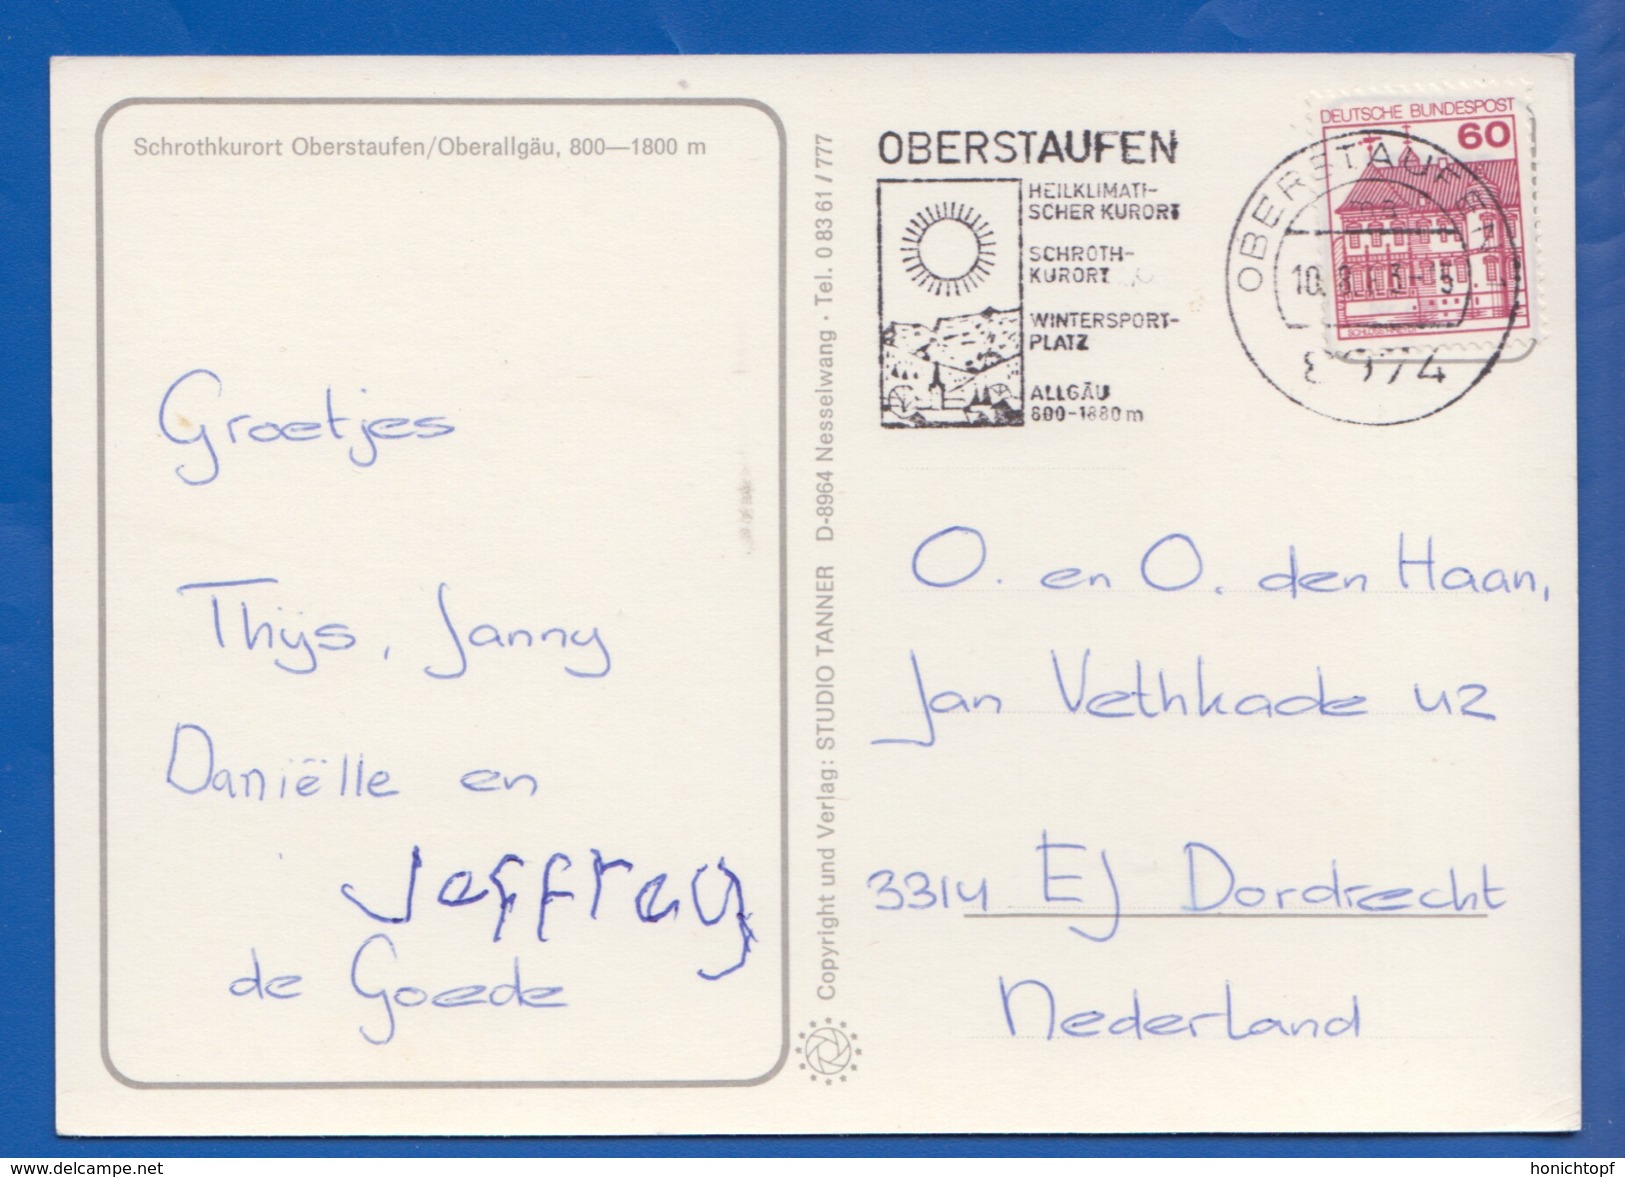 Schrothkurort Oberstaufen/Oberallgäu, 800—1800 m
Groetjes
Thijs, Janny
Daniëlle en
Jeffrey
de Goede
Copyright und Verlag: STUDIO TANNER D-8964 Nesselwang · Tel. 0 83 61 / 777
OBERSTAUFEN
HEILKLIMATI-
SCHER KURORT
SCHROTH-
KURORT
WINTERSPORT-
PLATZ
ALLGÄU
800-1880 m
DEUTSCHE BUNDESPOST
60
OBERSTAUFEN
O. en O. den Haan,
Jan Vethkade 42
3314 EJ Dordrecht
Nederland
www.delcampe.net
honichtopf